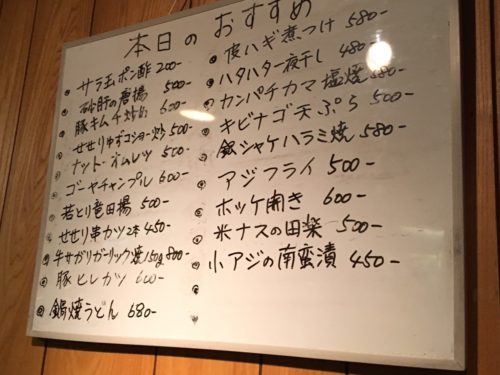 本日のおすすめ
サラ玉ポン酢 200-
砂肝の唐揚 500-
豚キムチ炒め 600-
せせりゆずコショー炒 500-
ナットーオムレツ 500-
ゴーヤチャンプル 600-
若とり竜田揚 500-
せせり串カツ2本 450-
牛サガリガーリック焼150g 800-
豚ヒレカツ 600-
鍋焼うどん 680-
皮ハギ煮つけ 580-
ハタハタ一夜干し 480-
カンパチカマ塩焼 580-
キビナゴ天ぷら 500-
銀シャケハラミ焼 580-
アジフライ 500-
ホッケ開き 600-
米ナスの田楽 500-
小アジの南蛮漬 450-